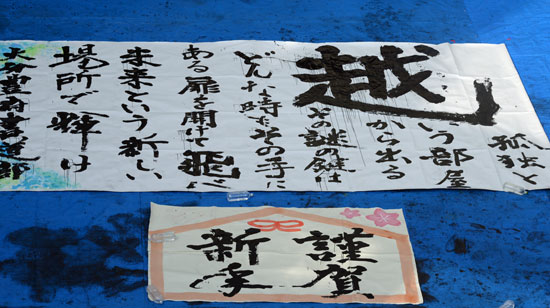 越
孤独と
いう部屋
から
謎の鍵は
どんな時もその手に
ある扉を開けて飛べ
未来という新しい
場所で輝け
大分豊府書道部
謹賀
新年